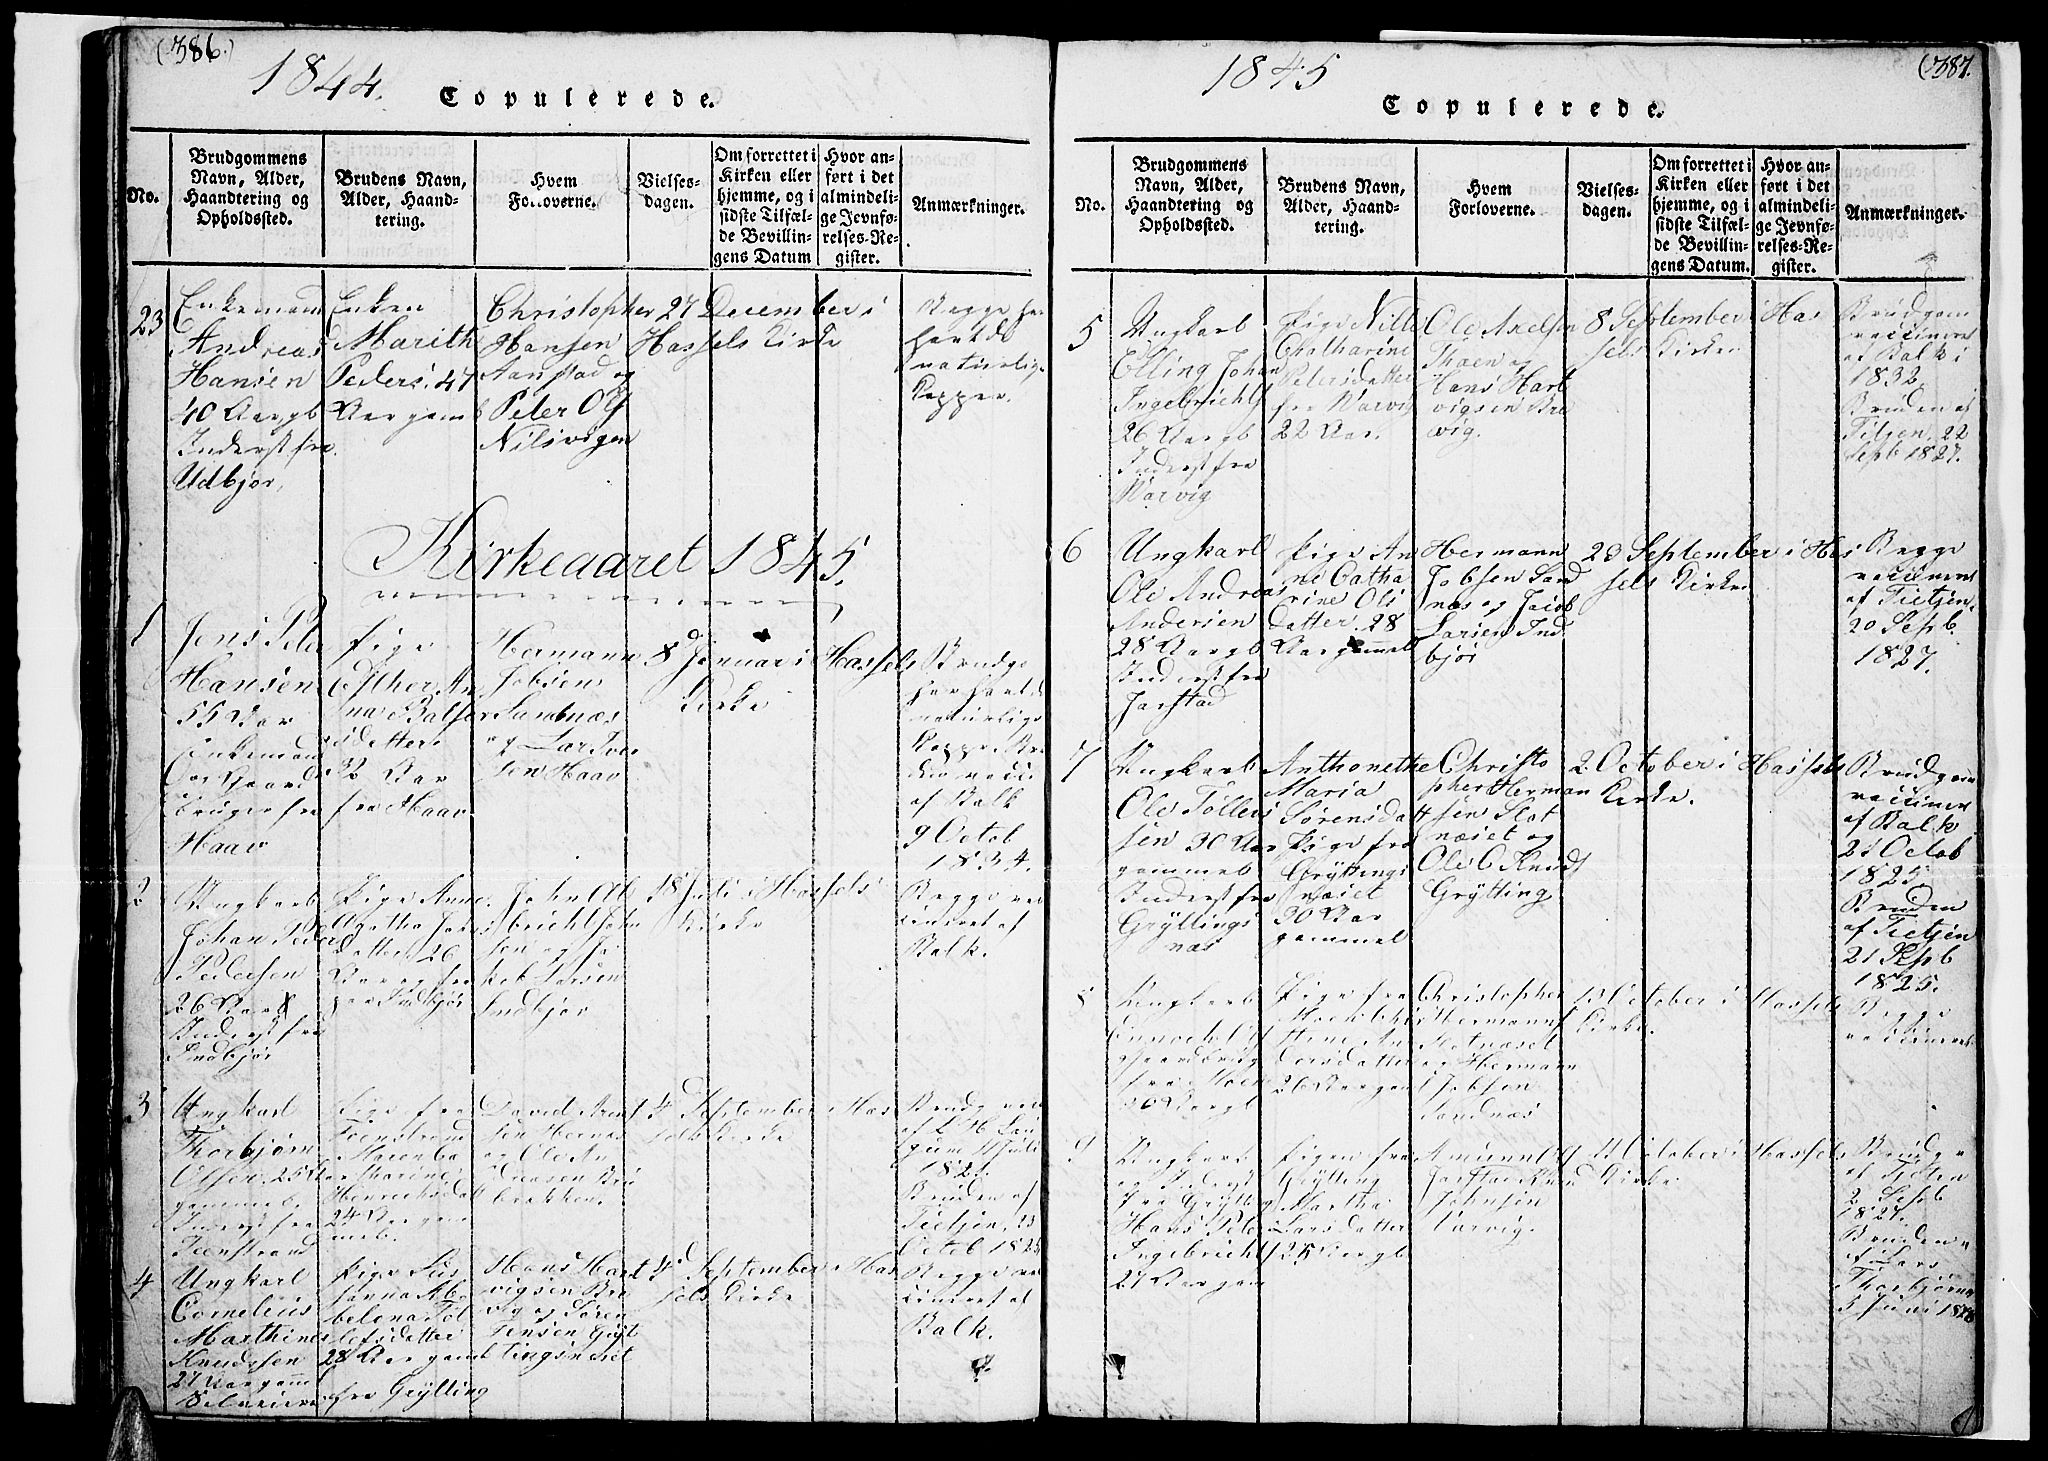 (386.)
1844.
Copulerede.
No.
Brudgommens
Navn, Alder,
Haandtering og
Opholdssted.
Brudens Navn,
Alder, Haand-
tering.
Hvem
Forloverne.
Vielses-
dagen.
Om forrettet i
Kirken eller
hjemme, og i
sidste Tilfæl-
de Bevillin-
gens Datum
Hvor an-
ført i det
almindeli-
ge Jevnfø-
relses-Re-
gister.
Anmærkninger.
23
Enkemand
Andreas
Hansen
40 Aar gb
Inderst fra
Udbjør.
Enken
Marith
Peders. 47
Aar gamb
Christopher
Hansen
Aanstad og
Peter Ols
Nilsvigen
27 December i
Hassels Kirke
Begge ha
havt de
naturlige
Kopper.
Kirkeaaret 1845.
1
Jens Peter
Hansen
55 Aar
Enkemand
og Gaard
bruger fra
Haav
Pige
Esther An
na Balser
sdatter
32 Aar
fra Haav
Hermann
Jobsen
Sandnæs
og Lars Iver
sen Haav
8 Januar i Hassels
Kirke
Brudg
har havt de
naturlige
Kopper. Bru
den vacc.
af Balk
9 Octob
1834.
2
Ungkarl
Johan Peder
Pedersen
26 Aar
Inderst fra
Indbjør
Pige Anne
Agatha Jo
datter 26
Aar og fra
Indbjør
John
brichts
sen og Ja
kob Larsen
Indbjør
18 Juli i Hassels
Kirke
Begge vac
cineret af
Balk.
3
Ungkarl
Thorbjørn
Olsen 25 Aar
gammel
Inderst fra
Teenstrand
Pige fra
Teenstrand
Maren
Henrichsdat
24 Aar gam
mel.
David Arnt
sen Hernæs
og Ole An
dreasen Bre
brekken.
4 September i Has
sels Kirke
Brudg vac
af
1821.
Bruden af
Tietjen 23
Octob
4
Ungkarl
Cornelius
Marthines
Knudsen
27 Aar gaml
Pige Sus
hanna Ab
belona Tol
lefsdatter
28 Aar gaml
fra Grytting
Hans Hart
vigsen Bre
vig og Søren
Jensen Gryt
tingsnæset
4 September i Has
sels Kirke
Begge vac
cineret af
Balk.
1845
(387.
Copulerede.
No.
Brudgommens
Navn, Alder,
Haandtering og
Opholdssted.
Brudens Navn,
Alder, Haand-
tering.
Hvem
Forloverne.
Vielses-
dagen.
Om forrettet i
Kirken eller
hjemme, og i
sidste Tilfæl-
de Bevillin-
gens Datum.
Hvor an-
ført i det
almindeli-
ge Jevnfø-
relses-Re-
gister.
Anmærkninger.
5
Ungkarl
Elling Johan
Ingebrichts
26 Aar gb
Inderst fra
Warvig
Pige Nille
Chatharine
Petersdatter
fra Warvig
22 Aar.
Ole Axelsen
Thoen og
Hans Hart
vigsen Bre
vig.
8 September i Has
sels Kirke
Brudgom
vaccineret
af Balk i
1832
Bruden af
Titjen. 22
Sepb 1827.
6
Ungkarl
Ole Andreas
Andersen
28 Aar gb
Inderst fra
Jarstad
Pige An
ne Catha
rine Ols
datter. 28
Aar gammel
Hermann
Jobsen Sand
næs og Jacob
Larsen Ind
bjør
23 September i Has
sels Kirke
Begge
vaccineret
af Tietjen.
20 Sepb.
1827.
7
Ungkarl
Ole Tollers
sen 30 Aar
gammel
Inderst fra
Gryttings
næs
Anthonethe
Maria
Sørensdatt
Pige fra
Gryttings
næset
30 Aar
gammel
Christo
pher Herman
sen Slot
næset og
Ole C Knuds
Grytting
2. October i Hassels
Kirke.
Brudgom
vaccineret
af Balk
21 Octob
1825.
Bruden
af Tietjen
21 Sepb
1825.
8
Ungkarl
Gaardbrug
fra Moen
30 Aar gb
Pige fra
Stine An
dersdatter
26 Aar gaml
Christopher
Hermanns
Slotnæset
og Hermann
Jobsen
Sandnæs
October i Hassels
Kirke.
Begge
vaccineret
9
Ungkarl
og Inderst
fra Grytting
Hans Peter
Ingebrichts
27 Aar gam
Pigen fra
Grytting
Martha
Larsdatter
25 Aar gb
Amunn Ols
Jarstad Knud
Johnsen
Varvig.
October i Hassels
Kirke.
Brudg
af Tjeten
2. Sepb
1827.
Bruden
af Lars
Thorbjørns
5 Juni 1828